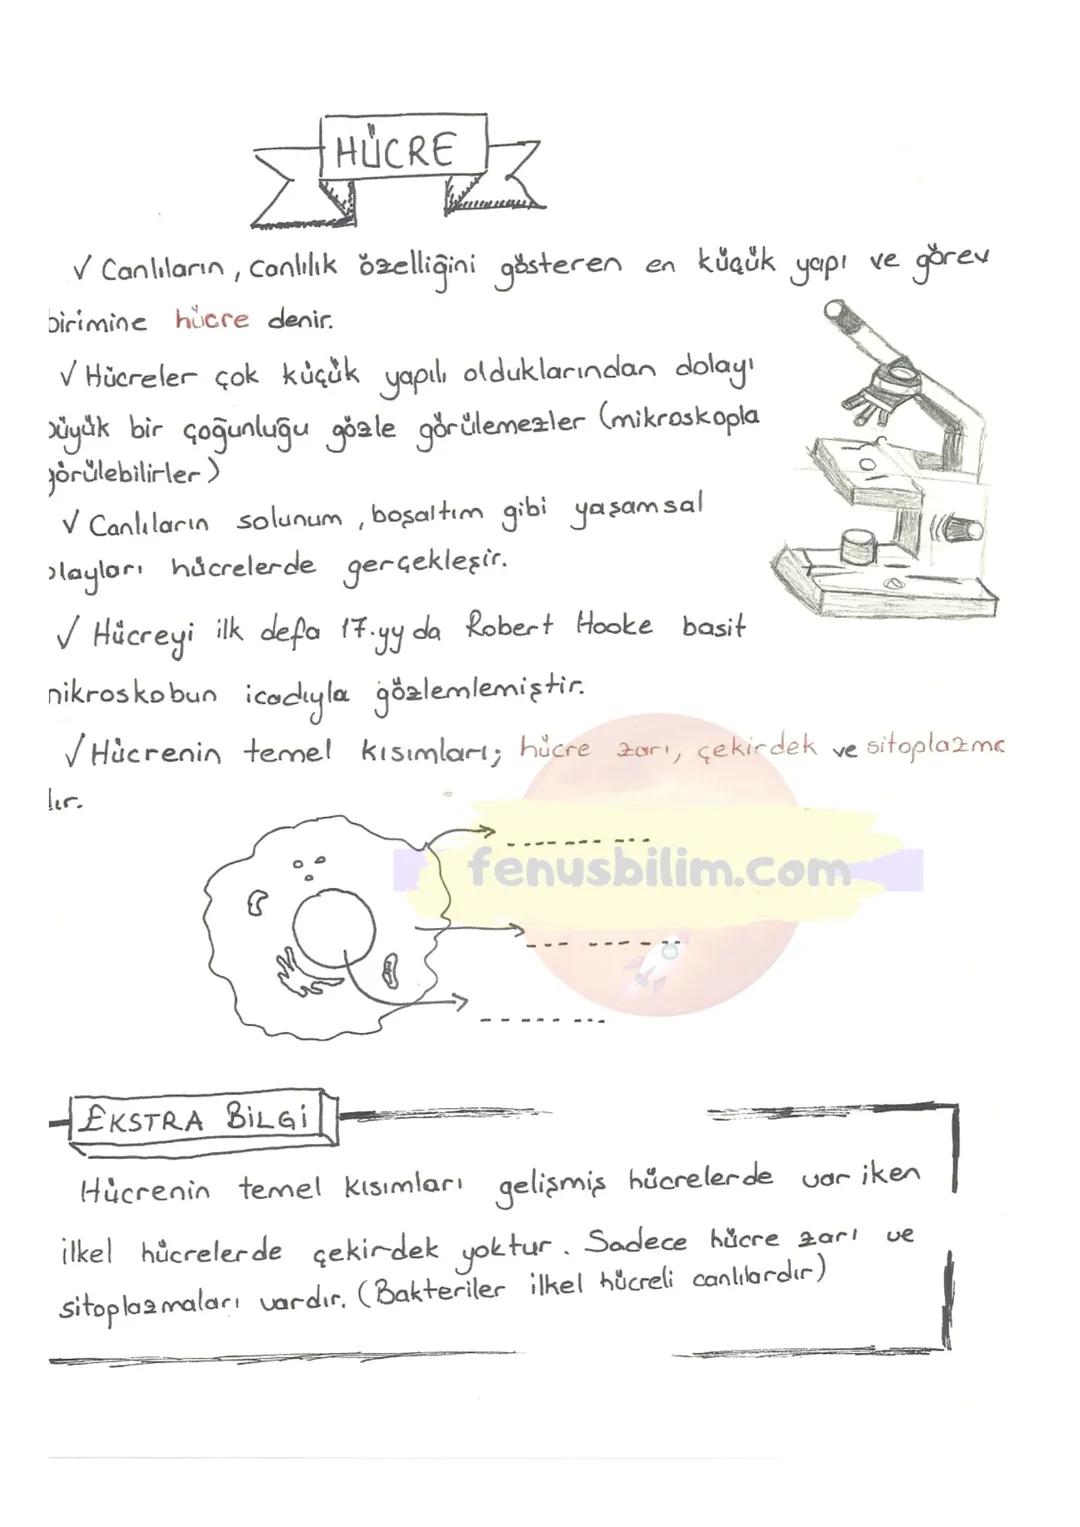 HÜCRE
✓ Canlıların, canlılık özelliğini gösteren en küçük yapı ve görev
birimine hücre denir.
✓ Hücreler çok küçük yapılı olduklarından dolayı
büyük bir çoğunluğu gözle görülemezler (mikroskopla
görülebilirler)
✓ Canlıların solunum, boşaltım gibi yaşamsal
olayları hücrelerde gerçekleşir.
✓ Hücreyi ilk defa 17.yy da Robert Hooke basit
mikroskobun icadıyla gözlemlemiştir.
✓ Hücrenin temel kısımları; hücre zarı, çekirdek ve sitoplazma
dır.
fenusbilim.com
EKSTRA BİLGİ
Hücrenin temel kısımları gelişmiş hücrelerde var iken
ilkel hücrelerde çekirdek yoktur. Sadece hücre zarı ve
sitoplazmaları vardır. (Bakteriler ilkel hücreli canlılardır)